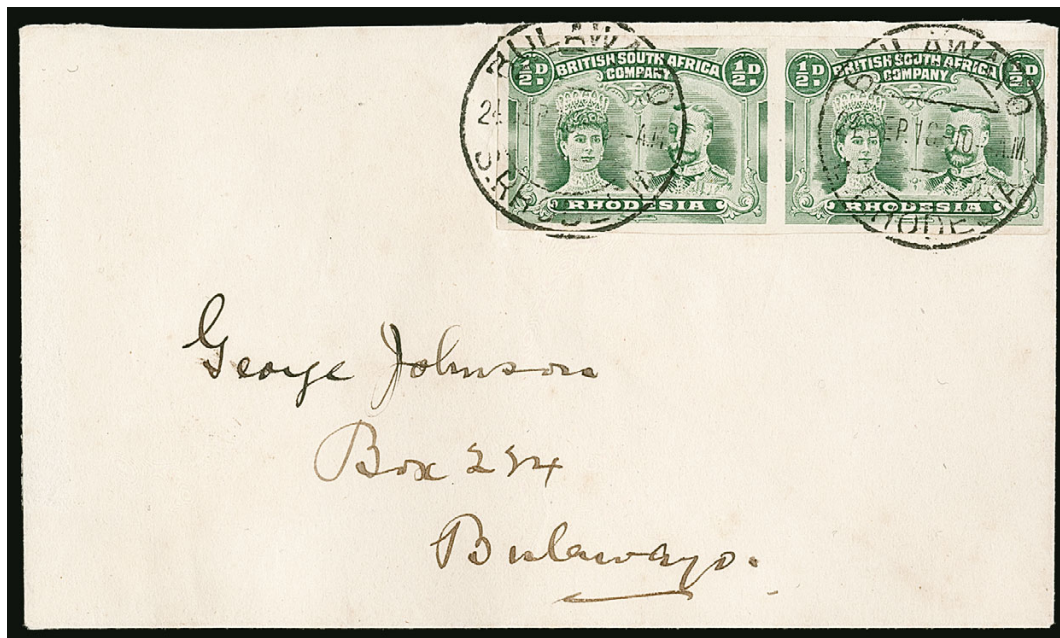 BULAWAYO
24 SEP
-A.M
S. RHODESIA
½D. BRITISH SOUTH AFRICA ½D.
COMPANY
RHODESIA
½D. BRITISH SOUTH AFRICA ½D.
COMPANY
RHODESIA
BULAWAYO
SEP. 10 10 A.M
RHODESIA
George Johnson
Box 234
Bulawayo.